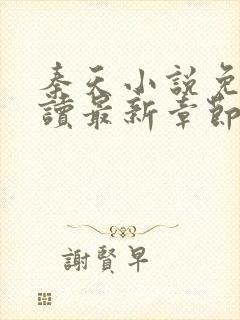 秦天小說免
讀最新章節
謝賢早